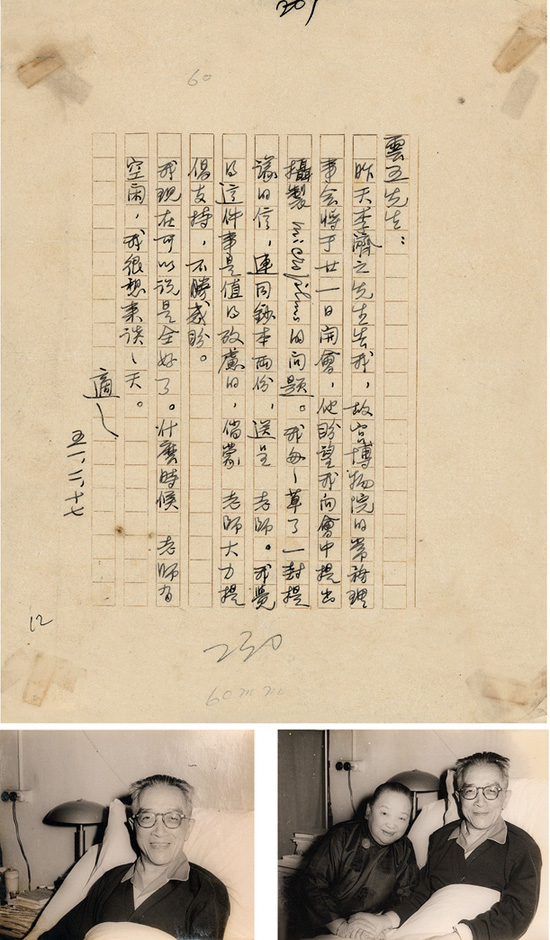 201
60
雲五先生：
昨天李濟之先生告我，故宮博物院的常務理
事会將于廿一日開會，他盼望我向會中提出
攝製 microfilms 的問題。我匆々草了一封提
議的信，連同鈔本兩份，送呈 老師。我覺
得這件事是值得攷慮的，倘蒙 老師大力提
倡支持，不勝感盼。
我現在可以說是全好了。什麼時候 老師有
空閑，我很想来談々天。
適
五一、二、十七
12
230